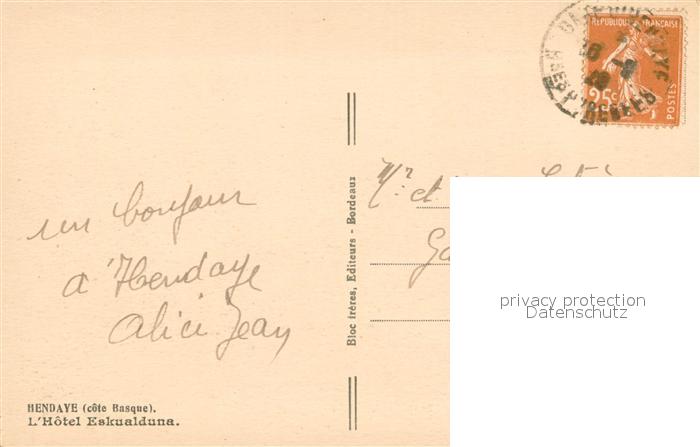 RÉPUBLIQUE FRANÇAISE
25c
POSTES
un bonjour
a'Hendaye
Alice Jean
Bloc frères, Editeurs - Bordeaux
Mr. et
privacy protection
Datenschutz
HENDAYE (côte Basque).
L'Hôtel Eskualduna.